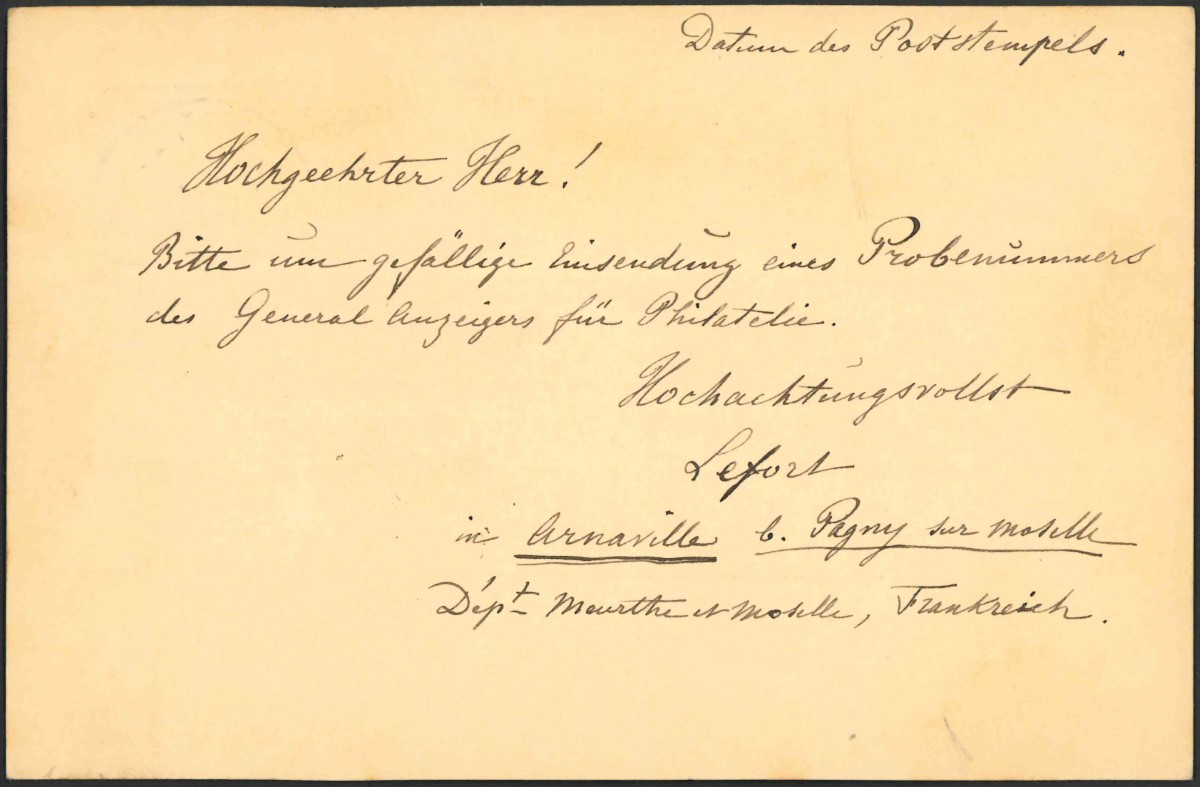 Datum des Poststempels.
Hochgeehrter Herr!
Bitte um gefällige Einsendung eines Probenummers
des General Anzeigers für Philatelie.
Hochachtungsvollst
Lefort
in Arnaville b. Pagny sur Moselle
Dépt Meurthe et Moselle, Frankreich.